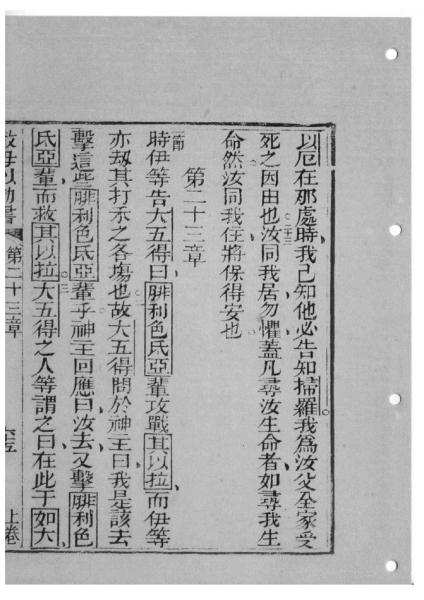 以厄在那處時我已知他必告知掃羅我爲汝父全家受
死之因由也二十三汝同我居勿懼蓋凡尋汝生命者如尋我生
命然汝同我住將保得安也
第二十三章
一節
時伊等告大五得曰腓利色氏亞輩攻戰其以拉而伊等
亦刼其打禾之各塲也二故大五得問於神主曰我是該去
擊這些腓利色氏亞輩乎神主回應曰汝去又擊腓利色
氏亞輩而救其以拉三大五得之人等謂之曰在此于如大
第二十三章
上卷